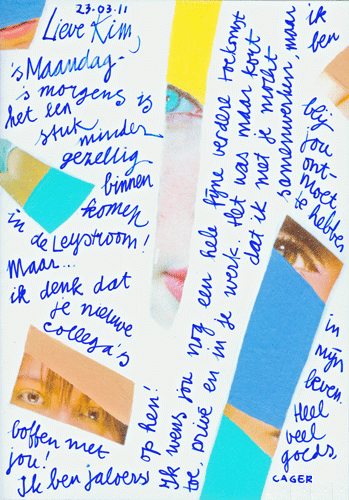 23.03.11
Lieve Kim,
'sMaandag-
's morgens is
het een
stuk minder
gezellig
binnen
komen
in de Leystroom!
Maar...
ik denk dat
je nieuwe
collega's
boffen met
jou!
Ik ben jaloers
op hen!
Ik wens jou nog een hele fijne verdere toekomst
toe, privé en in je werk. Het was maar kort
dat ik met je mocht
samenwerken, maar
ik
ben
blij
jou
ont-
moet
te hebben
in
mijn
leven.
Heel
veel
goeds,
CAGER